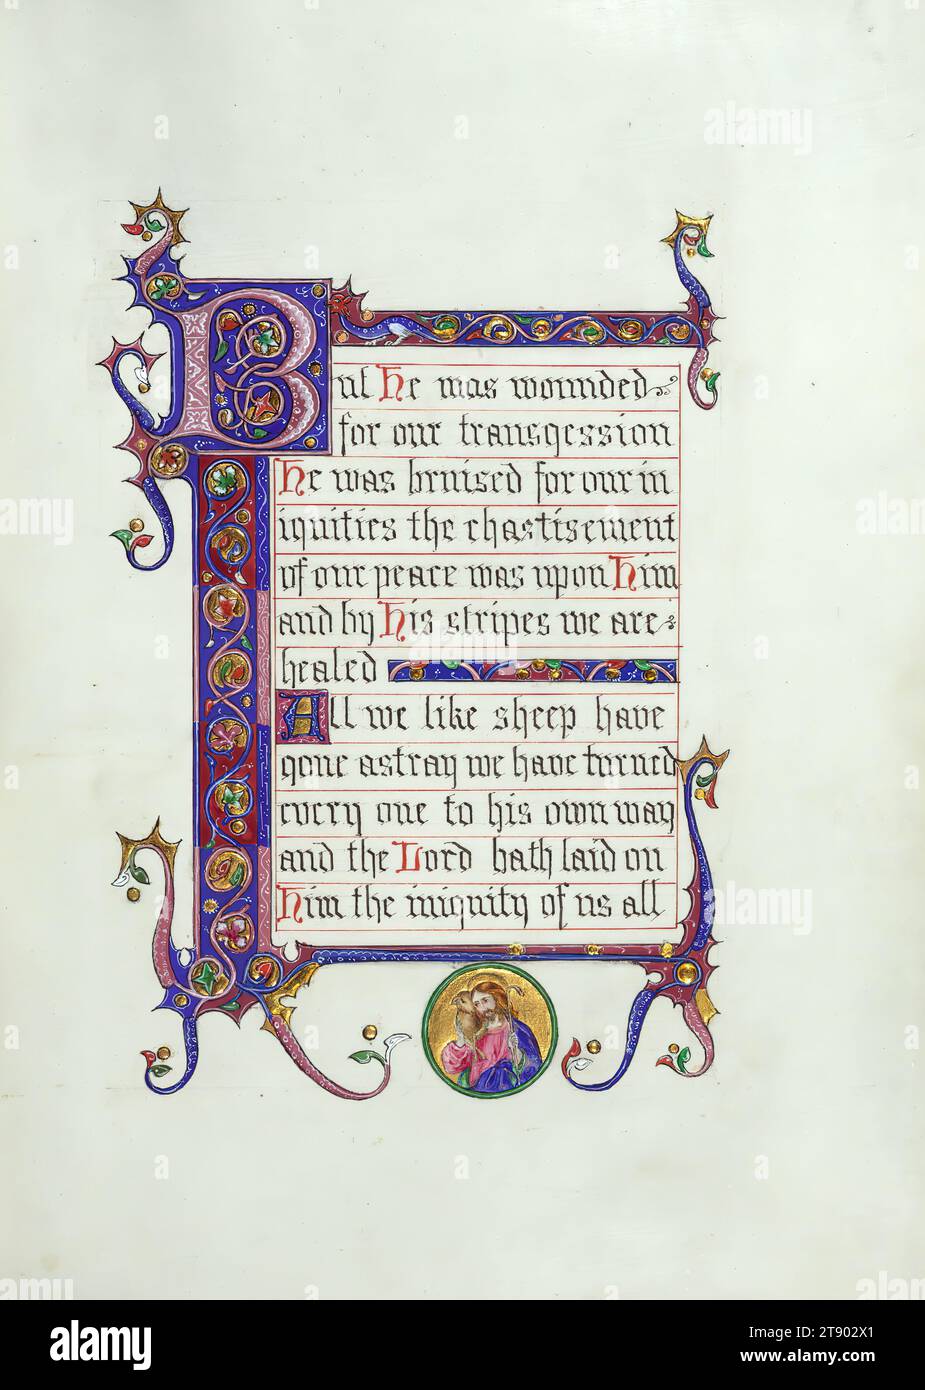 But He was wounded
for our transgession
He was bruised for our in
iquities the chastisement
of our peace was upon Him
and by His stripes we are
healed
All we like sheep have
gone astray we have turned
every one to his own way
and the Lord hath laid on
Him the iniquity of us all
alamy
Image ID: 2T902X1
www.alamy.com